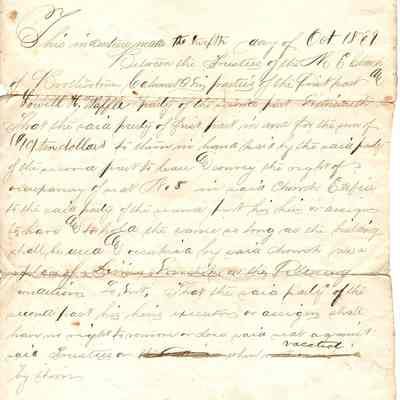 This indenture made the twelfth day of Oct 1871
Between the Trustees of the M E Church
of Columbia parties of the first part &
party of the second part Witnesseth
That the said party of first part in and for the sum of
(10) ten dollars to them in hand paid by the said party
of the second part to lease & convey the right of
occupancy of seat No 8 in said Church Edifice
to the said party of the second part his heirs or assigns
to have & to hold the same as long as the building
shall be used & occupied by said Church as a
place of Divine on the Following
conditions To Wit, That the said party of the
second part his heirs executors or assigns shall
have no right to remove or said seat against
said Trustees or when vacated
by them